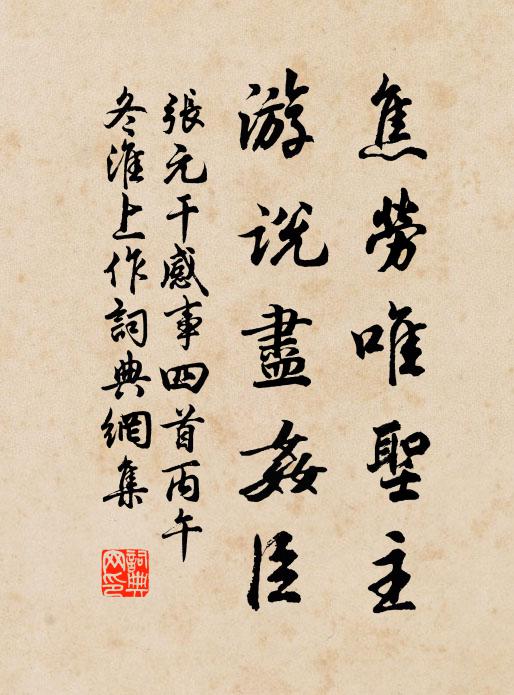 焦勞唯聖主
游説盡姦臣
張元干感事四首丙午
冬淮上作詞典網集
詞典
网印